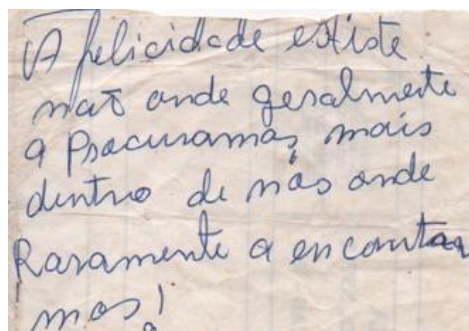 A felicidade existe
não onde geralmente
a Procuramos, mais
dentro de nós onde
Raramente a encontra
mos!